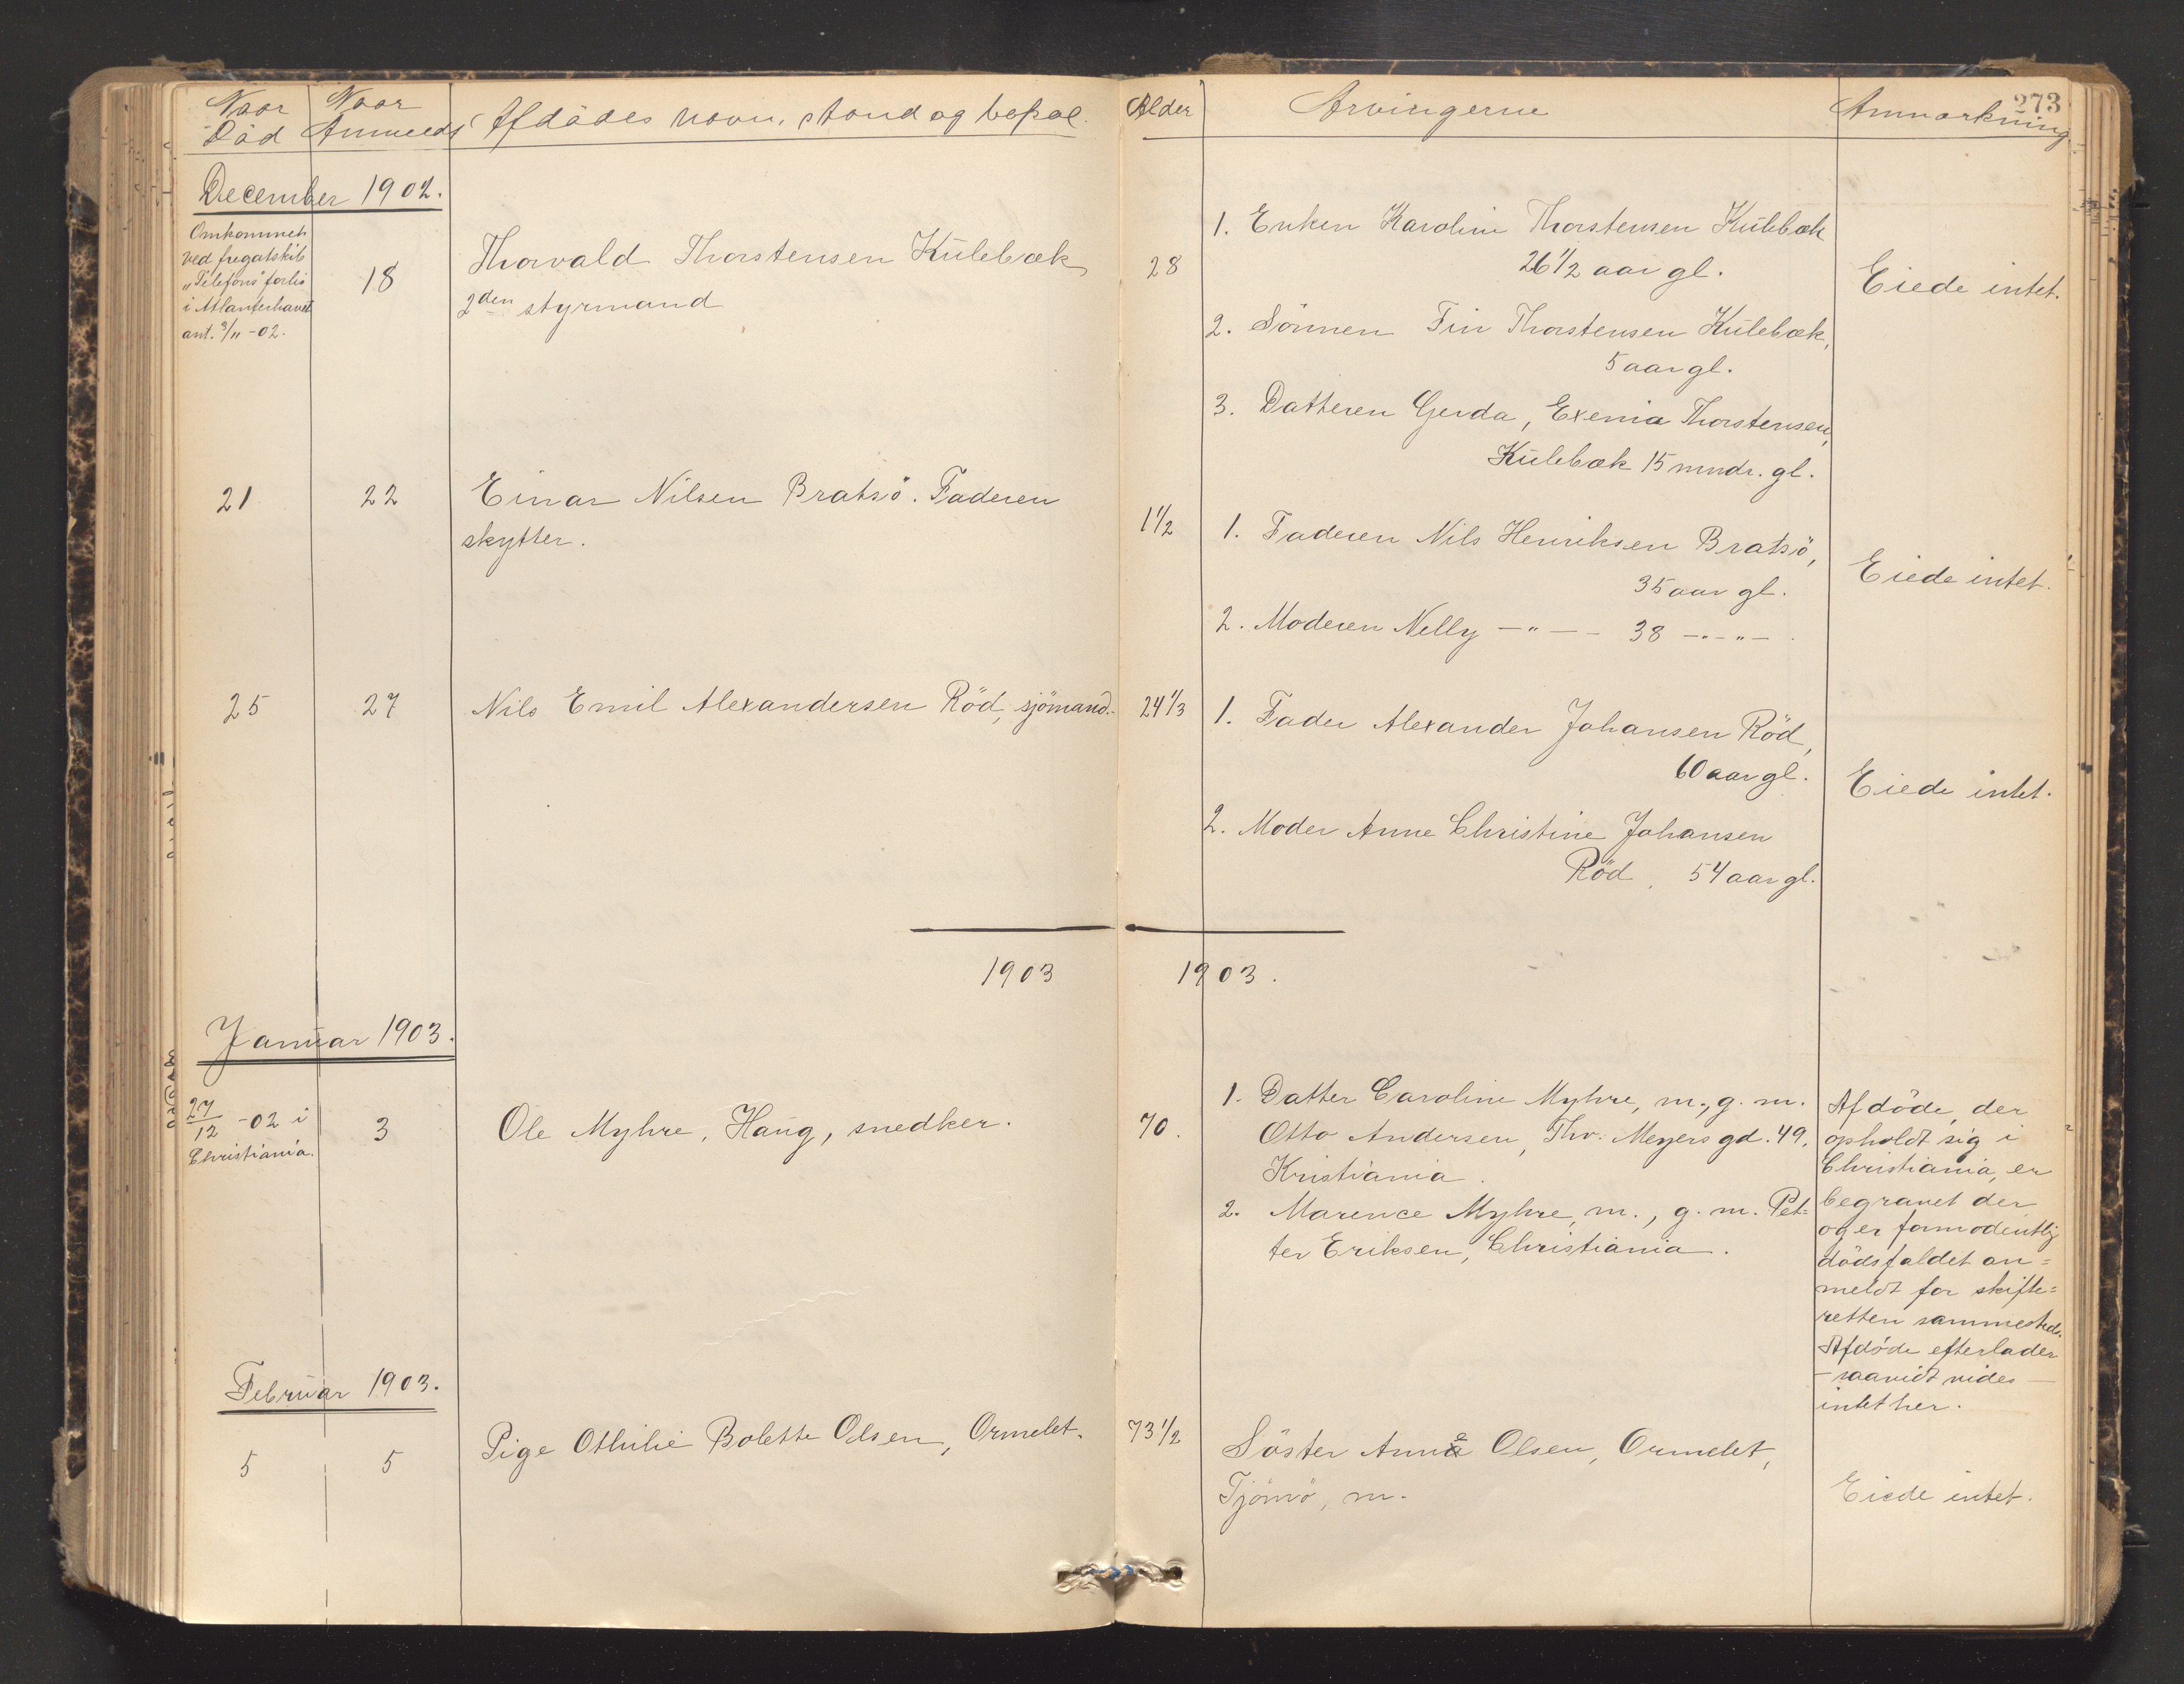 Naar Død
Naar Anmeldt
Afdødes navn, stand og bopæl.
Alder
Arvingerne
Anmærkning
273
December 1902.
Omkommet
ved fregatskib
"Telefons" forlis
i Atlanterhavet
ant. 3/11 -02.
18
Thorvald Thorstensen Kulebæk
2den styrmand
28
1. Enken Karoline Thorstensen Kulebæk
26 1/2 aar gl.
2. Sönnen Fin Thorstensen Kulebæk,
5 aar gl.
3. Datteren Gerda, Exenia Thorstensen,
Kulebæk 15 mndr. gl.
Eiede intet.
21
22
Einar Nilsen Bratsö. Faderen
skytter.
1 1/2
1. Faderen Nils Henriksen Bratsö,
35 aar gl.
2. Moderen Nelly -"- - 38 -"-"-
Eiede intet.
25
27
Nils Emil Alexandersen Röd, sjömand.
24 1/3
1. Fader Alexander Johansen Röd,
60 aar gl.
2. Moder Anne Christine Johansen
Röd, 54 aar gl.
Eiede intet.
1903
1903.
Januar 1903.
27/12 -02 i
Christiania.
3
Ole Myhre, Haug, snedker.
70.
1. Datter Caroline Myhre, m., g. m.
Otto Andersen, Thv. Meyers gd. 49,
Kristiania.
2. Marence Myhre, m., g. m. Pet=
ter Eriksen, Christiania.
Afdöde, der
opholdt sig i
Christiania, er
begravet der
og er formodentlig
dödsfaldet an=
meldt for skifte=
retten sammesteds.
Afdöde efterlader
- saavidt vides -
intet her.
Februar 1903.
5
5
Pige Othilie Bolette Olsen, Ormelet.
73 1/2
Söster Anne Olsen, Ormelet,
Tjömö, m.
Eiede intet.